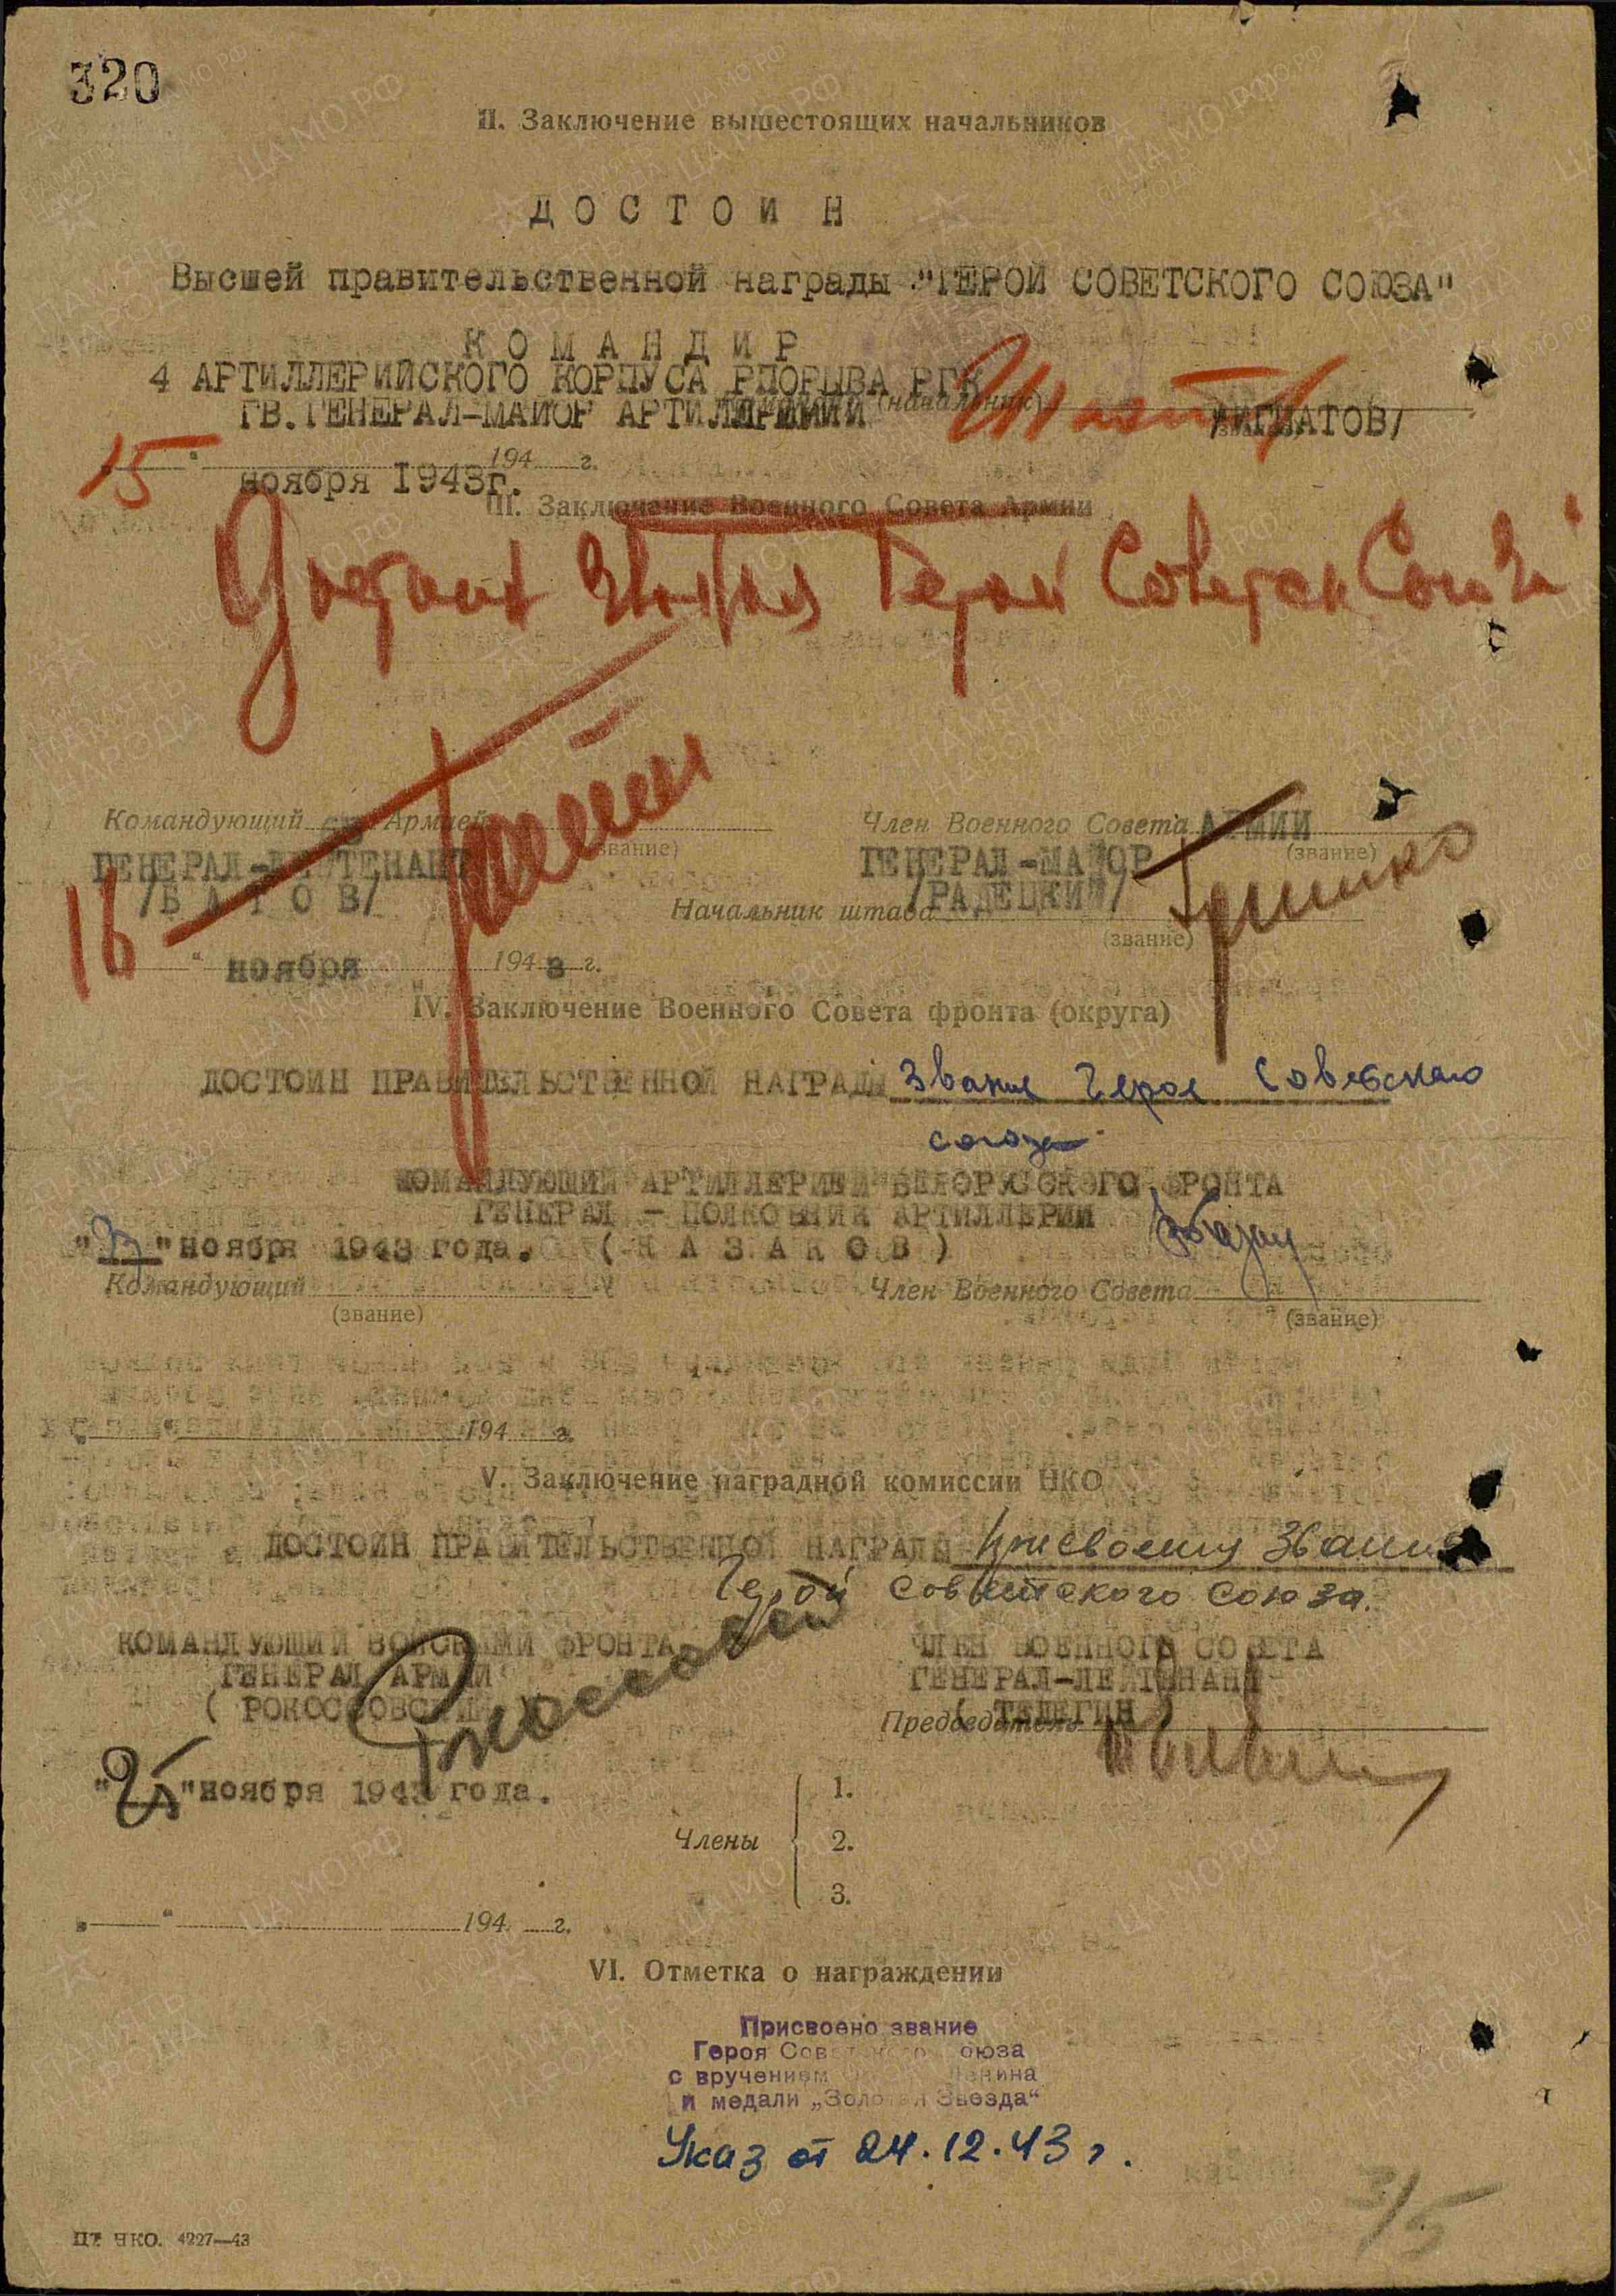 320
II. Заключение вышестоящих начальников
ДОСТОИН
Высшей правительственной награды "ГЕРОЙ СОВЕТСКОГО СОЮЗА"
КОМАНДИР
4 АРТИЛЛЕРИЙСКОГО КОРПУСА РПОРЫВА РГК
(начальник)
ГВ.ГЕНЕРАЛ-МАЙОР АРТИЛЛЕРИИ /ИГНАТОВ/
15 " 194 г.
ноября 1943г.
III. Заключение Военного Совета Армии
Достоин звания Герой Советск Союза
Командующий 65 Армией Член Военного Совета АРМИИ
(звание) (звание)
ГЕНЕРАЛ-ЛЕЙТЕНАНТ ГЕНЕРАЛ-МАЙОР
/БАТОВ/ /РАДЕЦКИЙ/
Начальник штаба
(звание)
16 " ноября 1943 г.
IV. Заключение Военного Совета фронта (округа)
ДОСТОИН ПРАВИТЕЛЬСТВЕННОЙ НАГРАДЫ звание Героя Советского
союза
КОМАНДУЮЩИЙ АРТИЛЛЕРИЕЙ БЕЛОРУССКОГО ФРОНТА
ГЕНЕРАЛ - ПОЛКОВНИК АРТИЛЛЕРИИ
" " ноября 1943 года. (КАЗАКОВ)
Командующий Член Военного Совета
(звание) (звание)
" " 194 г.
V. Заключение наградной комиссии НКО
ДОСТОИН ПРАВИТЕЛЬСТВЕННОЙ НАГРАДЫ присвоения звания
Герой Советского Союза.
КОМАНДУЮЩИЙ ВОЙСКАМИ ФРОНТА ЧЛЕН ВОЕННОГО СОВЕТА
ГЕНЕРАЛ АРМИИ ГЕНЕРАЛ-ЛЕЙТЕНАНТ
(РОКОССОВСКИЙ) (ТЕЛЕГИН)
Председатель
"25" ноября 1943 года.
Члены
1.
2.
3.
" " 194 г.
VI. Отметка о награждении
Присвоено звание
Героя Советского Союза
с вручением Ленина
и медали „Золотая Звезда“
Указ от 24.12.43 г.
3/5
ЦТ НКО. 4227—43